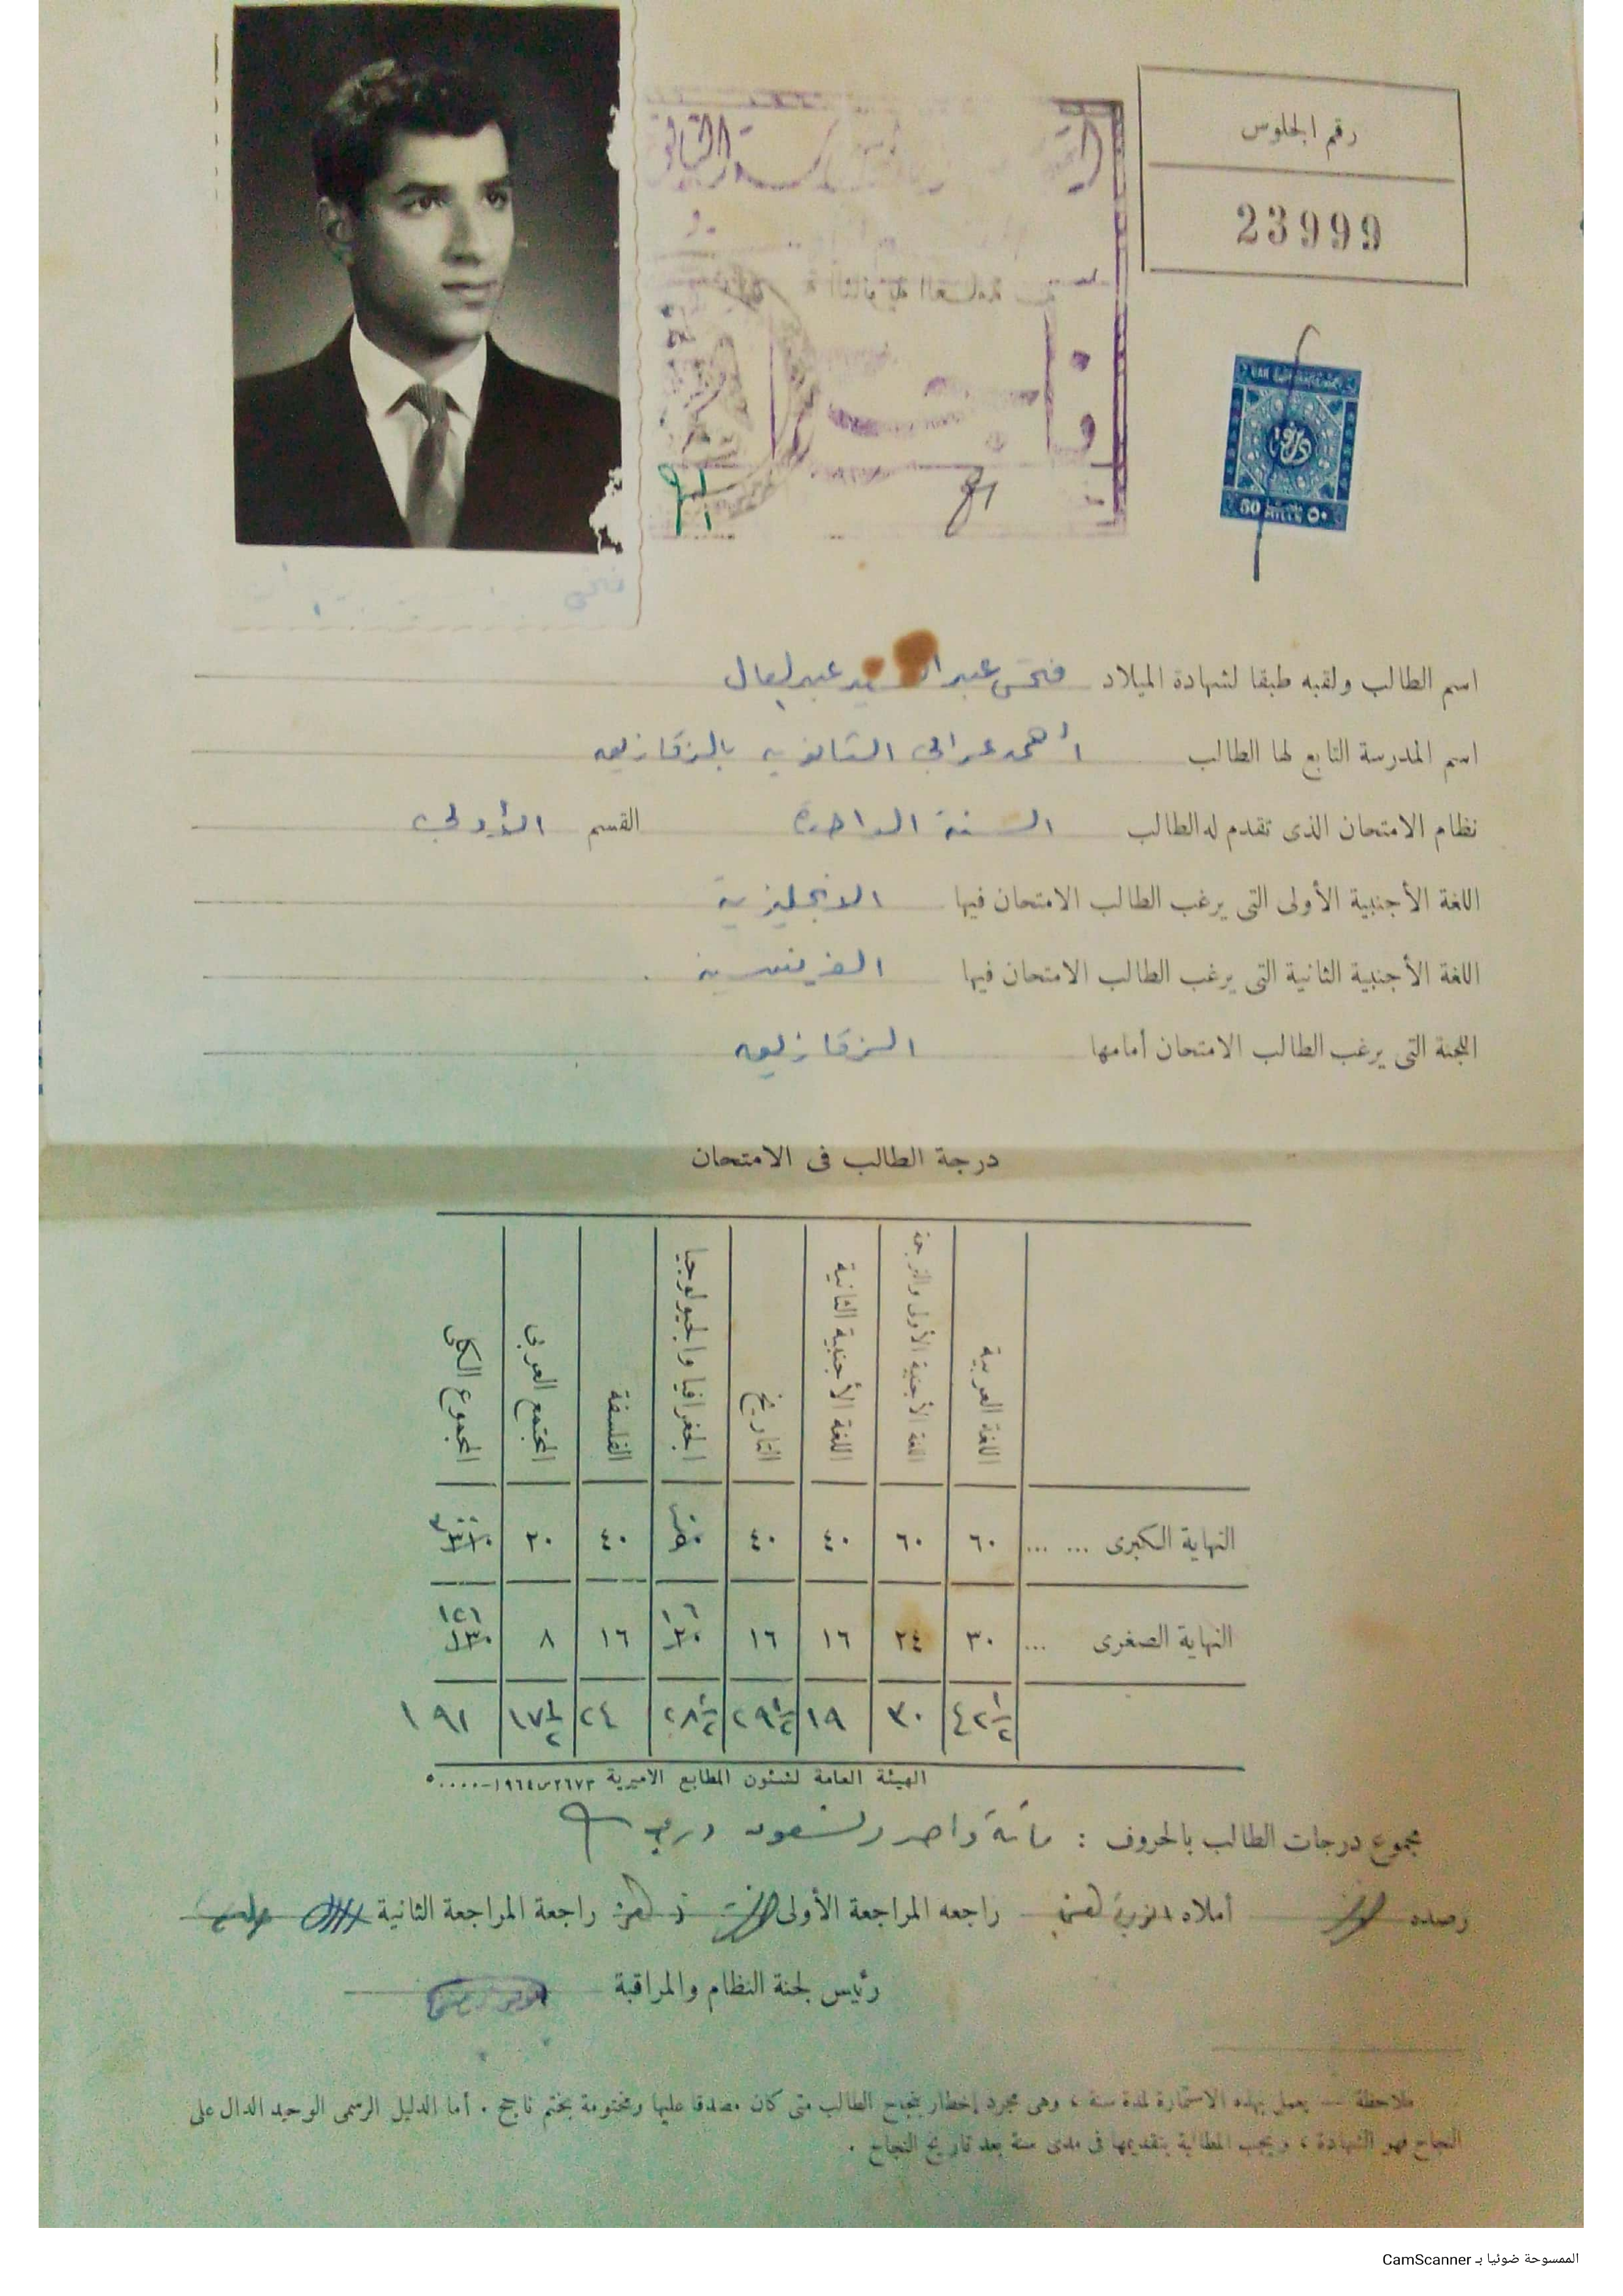 رقم الجلوس
23999
الثانوية العامة
UAR
60 MILLS ٥٠
اسم الطالب ولقبه طبقا لشهادة الميلاد فتحى عبد السيد عبد العال
اسم المدرسة التابع لها الطالب أحمد عرابى الثانوية بالزقازيق
نظام الامتحان الذى تقدم له الطالب السنة الواحدة القسم الأدبى
اللغة الأجنبية الأولى التى يرغب الطالب الامتحان فيها الانجليزية
اللغة الأجنبية الثانية التى يرغب الطالب الامتحان فيها الفرنسية
اللجنة التى يرغب الطالب الامتحان أمامها الزقازيق
درجة الطالب فى الامتحان
اللغة العربية
اللغة الأجنبية الأولى والترجمة
اللغة الأجنبية الثانية
التاريخ
الجغرافيا والجيولوجيا
الفلسفة
المجتمع العربى
المجموع الكلى
النهاية الكبرى ... ... ٦٠ ٦٠ ٤٠ ٤٠ ٤٠ ٢٠ ٣٠٠
النهاية الصغرى ... ٣٠ ٢٤ ١٦ ١٦ ١٦ ١٦ ٨ ١٢٦
٤٢ ١/٢ ٣٠ ١٩ ٢٩ ١/٢ ٢٨ ١/٢ ٢٤ ١٧ ١/٢ ١٩١
الهيئة العامة لشئون المطابع الاميرية ٢٦٧٣س١٩٦٤-٥٠٠٠٠
مجموع درجات الطالب بالحروف : مائة واحد وتسعون درجة
رصده أملاه راجعه المراجعة الأولى راجعة المراجعة الثانية
رئيس لجنة النظام والمراقبة
ملاحظة — يعمل بهذه الاستمارة لمدة سنة ، وهى مجرد إخطار بنجاح الطالب متى كان مصدقا عليها ومختومة بختم ناجح . أما الدليل الرسمى الوحيد الدال على
النجاح فهو الشهادة ، ويجب المطالبة بتقديمها فى مدى سنة بعد تاريخ النجاح .
الممسوحة ضوئيا بـ CamScanner